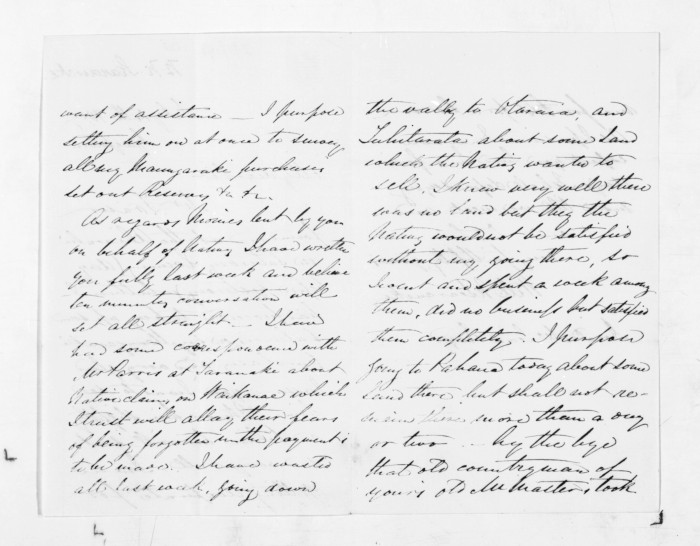 want of assistance — I purpose
setting him on at once to survey
all my Maungaraki purchases
set out Reserves &c &c.
As regards Monies lent by you
on behalf of Natives I have written
you fully last week and believe
ten minutes conversation will
set all straight — I have
had some correspondence with
Mr Parris at Taranaki about
Native claims on Waikanae which
I trust will allay their fears
of being forgotten when the payment is
to be made. I have wasted
all last week, going down
the valley to Otaraia, and
Tuhitarata about some Land
which the Natives wanted to
sell, I knew very well there
was no land but they the
Natives would not be satisfied
without my going there, so
I went and spent a week among
them, did no business but satisfied
them completely. I purpose
going to Pahaua today about some
Land there but shall not re-
main there more than a day
or two — by the bye
that old countryman of
yours old McMaster took